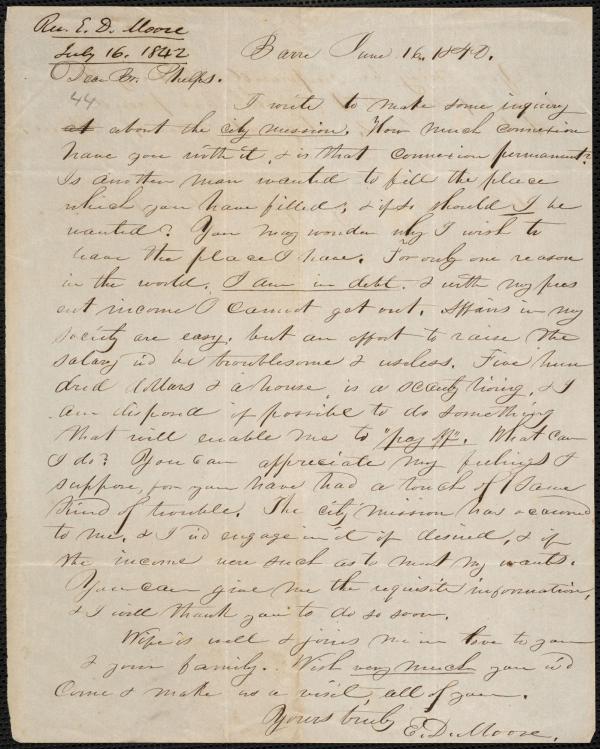 Rev. E. D. Moore
July 16. 1842
Barre June 16. 1842.
Dear Br. Phelps.
44
I write to make some inquiry
at about the city mission. How much connexion
have you with it, & is that connexion permanent?
Is another man wanted to fill the place
which you have filled, & if so should I be
wanted? You may wonder why I wish to
leave the place I have. For only one reason
in the world. I am in debt. & with my pres
ent income I cannot get out. Affairs in my
society are easy, but an effort to raise the
salary w'd be troublesome & useless. Five hun
dred dollars & a house, is a scanty living, & I
am disposed if possible to do something
that will enable me to "pay off". What can
I do? You can appreciate my feelings I
suppose, for you have had a touch of same
kind of trouble. The city mission has occurred
to me, & I w'd engage in it if desired, & if
the income were such as to meet my wants.
You can give me the requisite information,
& I will thank you to do so soon.
Wife is well & joins me in love to you
& your family. Wish very much you w'd
come & make us a visit, all of you.
Yours truly E. D. Moore.